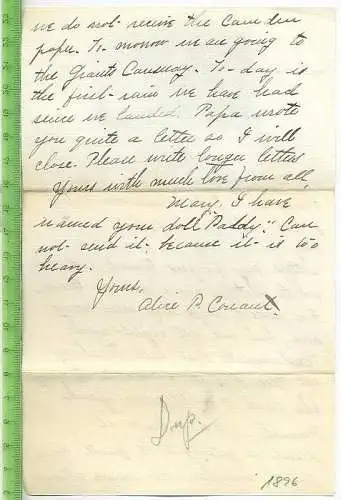 we do not receive the Camden
paper. To-morrow we are going to
the Giants Causway. To-day is
the first rain we have had
since we landed. Papa wrote
you quite a letter so I will
close. Please write longer letters
Yours with much love from all,
Mary. I have
named your doll "Paddy." Can
not send it because it is too
heavy.
Yours,
Alice P. Conant.
Dup.
1896